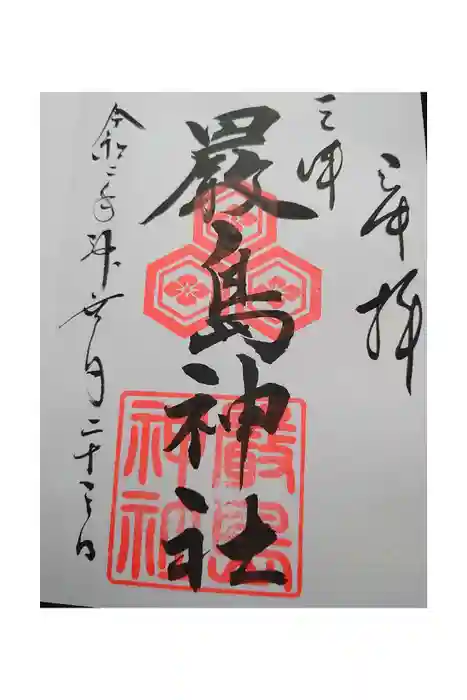 奉拝
嚴島神社
令和二年六月二十三日
嚴島
神社